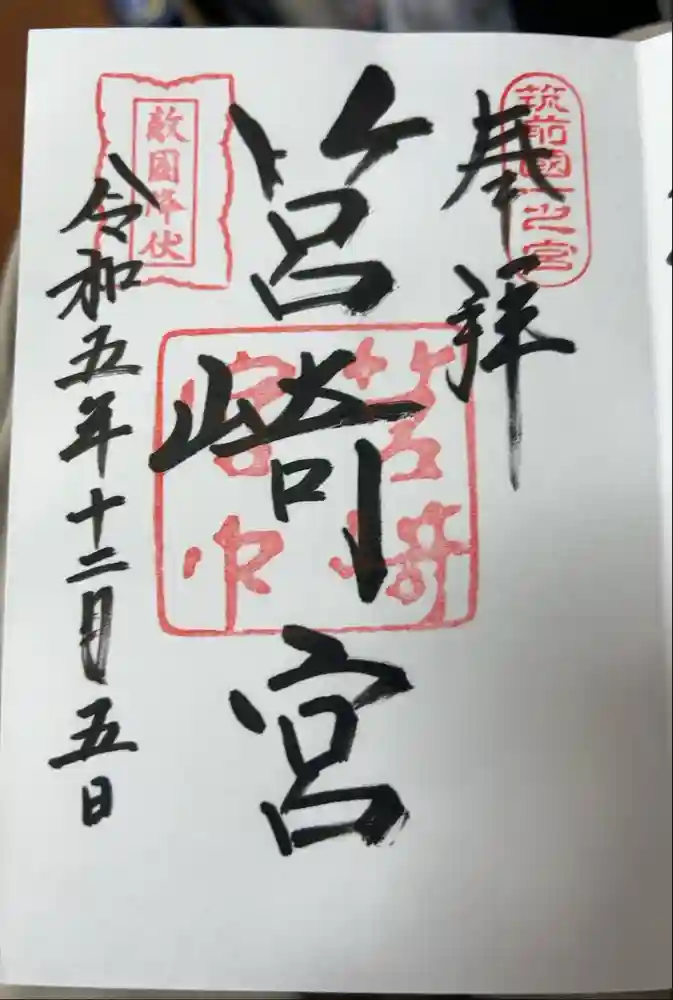 奉拝
筑前國一之宮
筥崎宮
敵國降伏
令和五年十二月五日